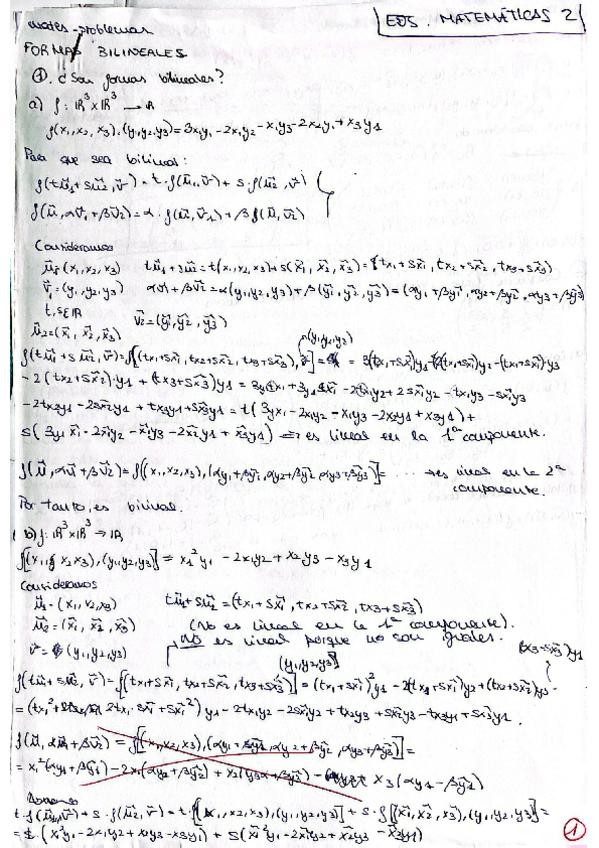 EJS. MATEMÁTICAS 2
FORMAS BILINEALES
①. ¿Son formas bilineales?
a) f: ℝ³×ℝ³ → ℝ
f(x₁,x₂,x₃),(y₁,y₂,y₃)=3x₁y₁-2x₁y₂-x₁y₃-2x₂y₁+x₃y₁
Para que sea bilineal:
f(tu⃗₁+su⃗₂,v⃗)=t·f(u⃗₁,v⃗)+s·f(u⃗₂,v⃗)
f(u⃗,αv⃗₁+βv⃗₂)=α·f(u⃗,v⃗₁)+βf(u⃗,v⃗₂)
Consideramos
u⃗₁=(x₁,x₂,x₃) tu⃗₁+su⃗₂=t(x₁,x₂,x₃)+s(x̄₁,x̄₂,x̄₃)=(tx₁+sx̄₁,tx₂+sx̄₂,tx₃+sx̄₃)
v⃗₁=(y₁,y₂,y₃) αv⃗₁+βv⃗₂=α(y₁,y₂,y₃)+β(ȳ₁,ȳ₂,ȳ₃)=(αy₁+βȳ₁,αy₂+βȳ₂,αy₃+βȳ₃)
t,s∈ℝ v⃗₂=(ȳ₁,ȳ₂,ȳ₃)
u⃗₂=(x̄₁,x̄₂,x̄₃)
(y₁,y₂,y₃)
f(tu⃗₁+su⃗₂,v⃗)=f[(tx₁+sx̄₁,tx₂+sx̄₂,tx₃+sx̄₃), = 3(tx₁+sx̄₁)y₁-2(tx₁+sx̄₁)y₂-(tx₁+sx̄₁)y₃
-2(tx₂+sx̄₂)·y₁+(tx₃+sx̄₃)y₁=
-2tx₂y₁-2sx̄₂y₁+tx₃y₁+sx̄₃y₁=t(3y₁x₁-2x₁y₂-x₁y₃-2x₂y₁+x₃y₁)+
s(3y₁x̄₁-2x̄₁y₂-x̄₁y₃-2x̄₂y₁+x̄₃y₁) ⇒ es lineal en la 1ª componente.
f(u⃗,αv⃗₁+βv⃗₂)=f[(x₁,x₂,x₃),(αy₁+βȳ₁,αy₂+βȳ₂,αy₃+βȳ₃)]= ... → es lineal en la 2ª
componente.
Por tanto, es bilineal.
b) f: ℝ³×ℝ³ → ℝ
f[(x₁,x₂,x₃),(y₁,y₂,y₃)]=x₁²y₁-2x₁y₂+x₂y₃-x₃y₁
Consideramos
u⃗₁=(x₁,x₂,x₃) tu⃗₁+su⃗₂=(tx₁+sx̄₁,tx₂+sx̄₂,tx₃+sx̄₃)
u⃗₂=(x̄₁,x̄₂,x̄₃) (No es lineal en la 1ª componente).
v⃗=(y₁,y₂,y₃) NO es lineal porque no son iguales.
(y₁,y₂,y₃)] (tx₃+sx̄₃)y₁
f(tu⃗₁+su⃗₂,v⃗)=f[(tx₁+sx̄₁,tx₂+sx̄₂,tx₃+sx̄₃)]=(tx₁+sx̄₁)²y₁-2(tx₁+sx̄₁)y₂+(tx₂+sx̄₂)y₃-
y₁-2tx₁y₂-2sx̄₁y₂+tx₂y₃+sx̄₂y₃-tx₃y₁+sx̄₃y₁.
f(u⃗,αv⃗₁+βv⃗₂)=f[(x₁,x₂,x₃),(αy₁+βȳ₁,αy₂+βȳ₂,αy₃+βȳ₃)]=
=x₁²(αy₁+βȳ₁)-2x₁(αy₂+βȳ₂)+x₂(y₃α+βȳ₃)- x₃(αy₁-βȳ₁)
t·f(u⃗₁,v⃗)+s·f(u⃗₂,v⃗)=t·f[(x₁,x₂,x₃),(y₁,y₂,y₃)]+s·f[(x̄₁,x̄₂,x̄₃),(y₁,y₂,y₃)]=
=t·(x₁²y₁-2x₁y₂+x₂y₃-x₃y₁)+s(x̄₁²y₁-2x̄₁y₂+x̄₂y₃-x̄₃y₁)
①